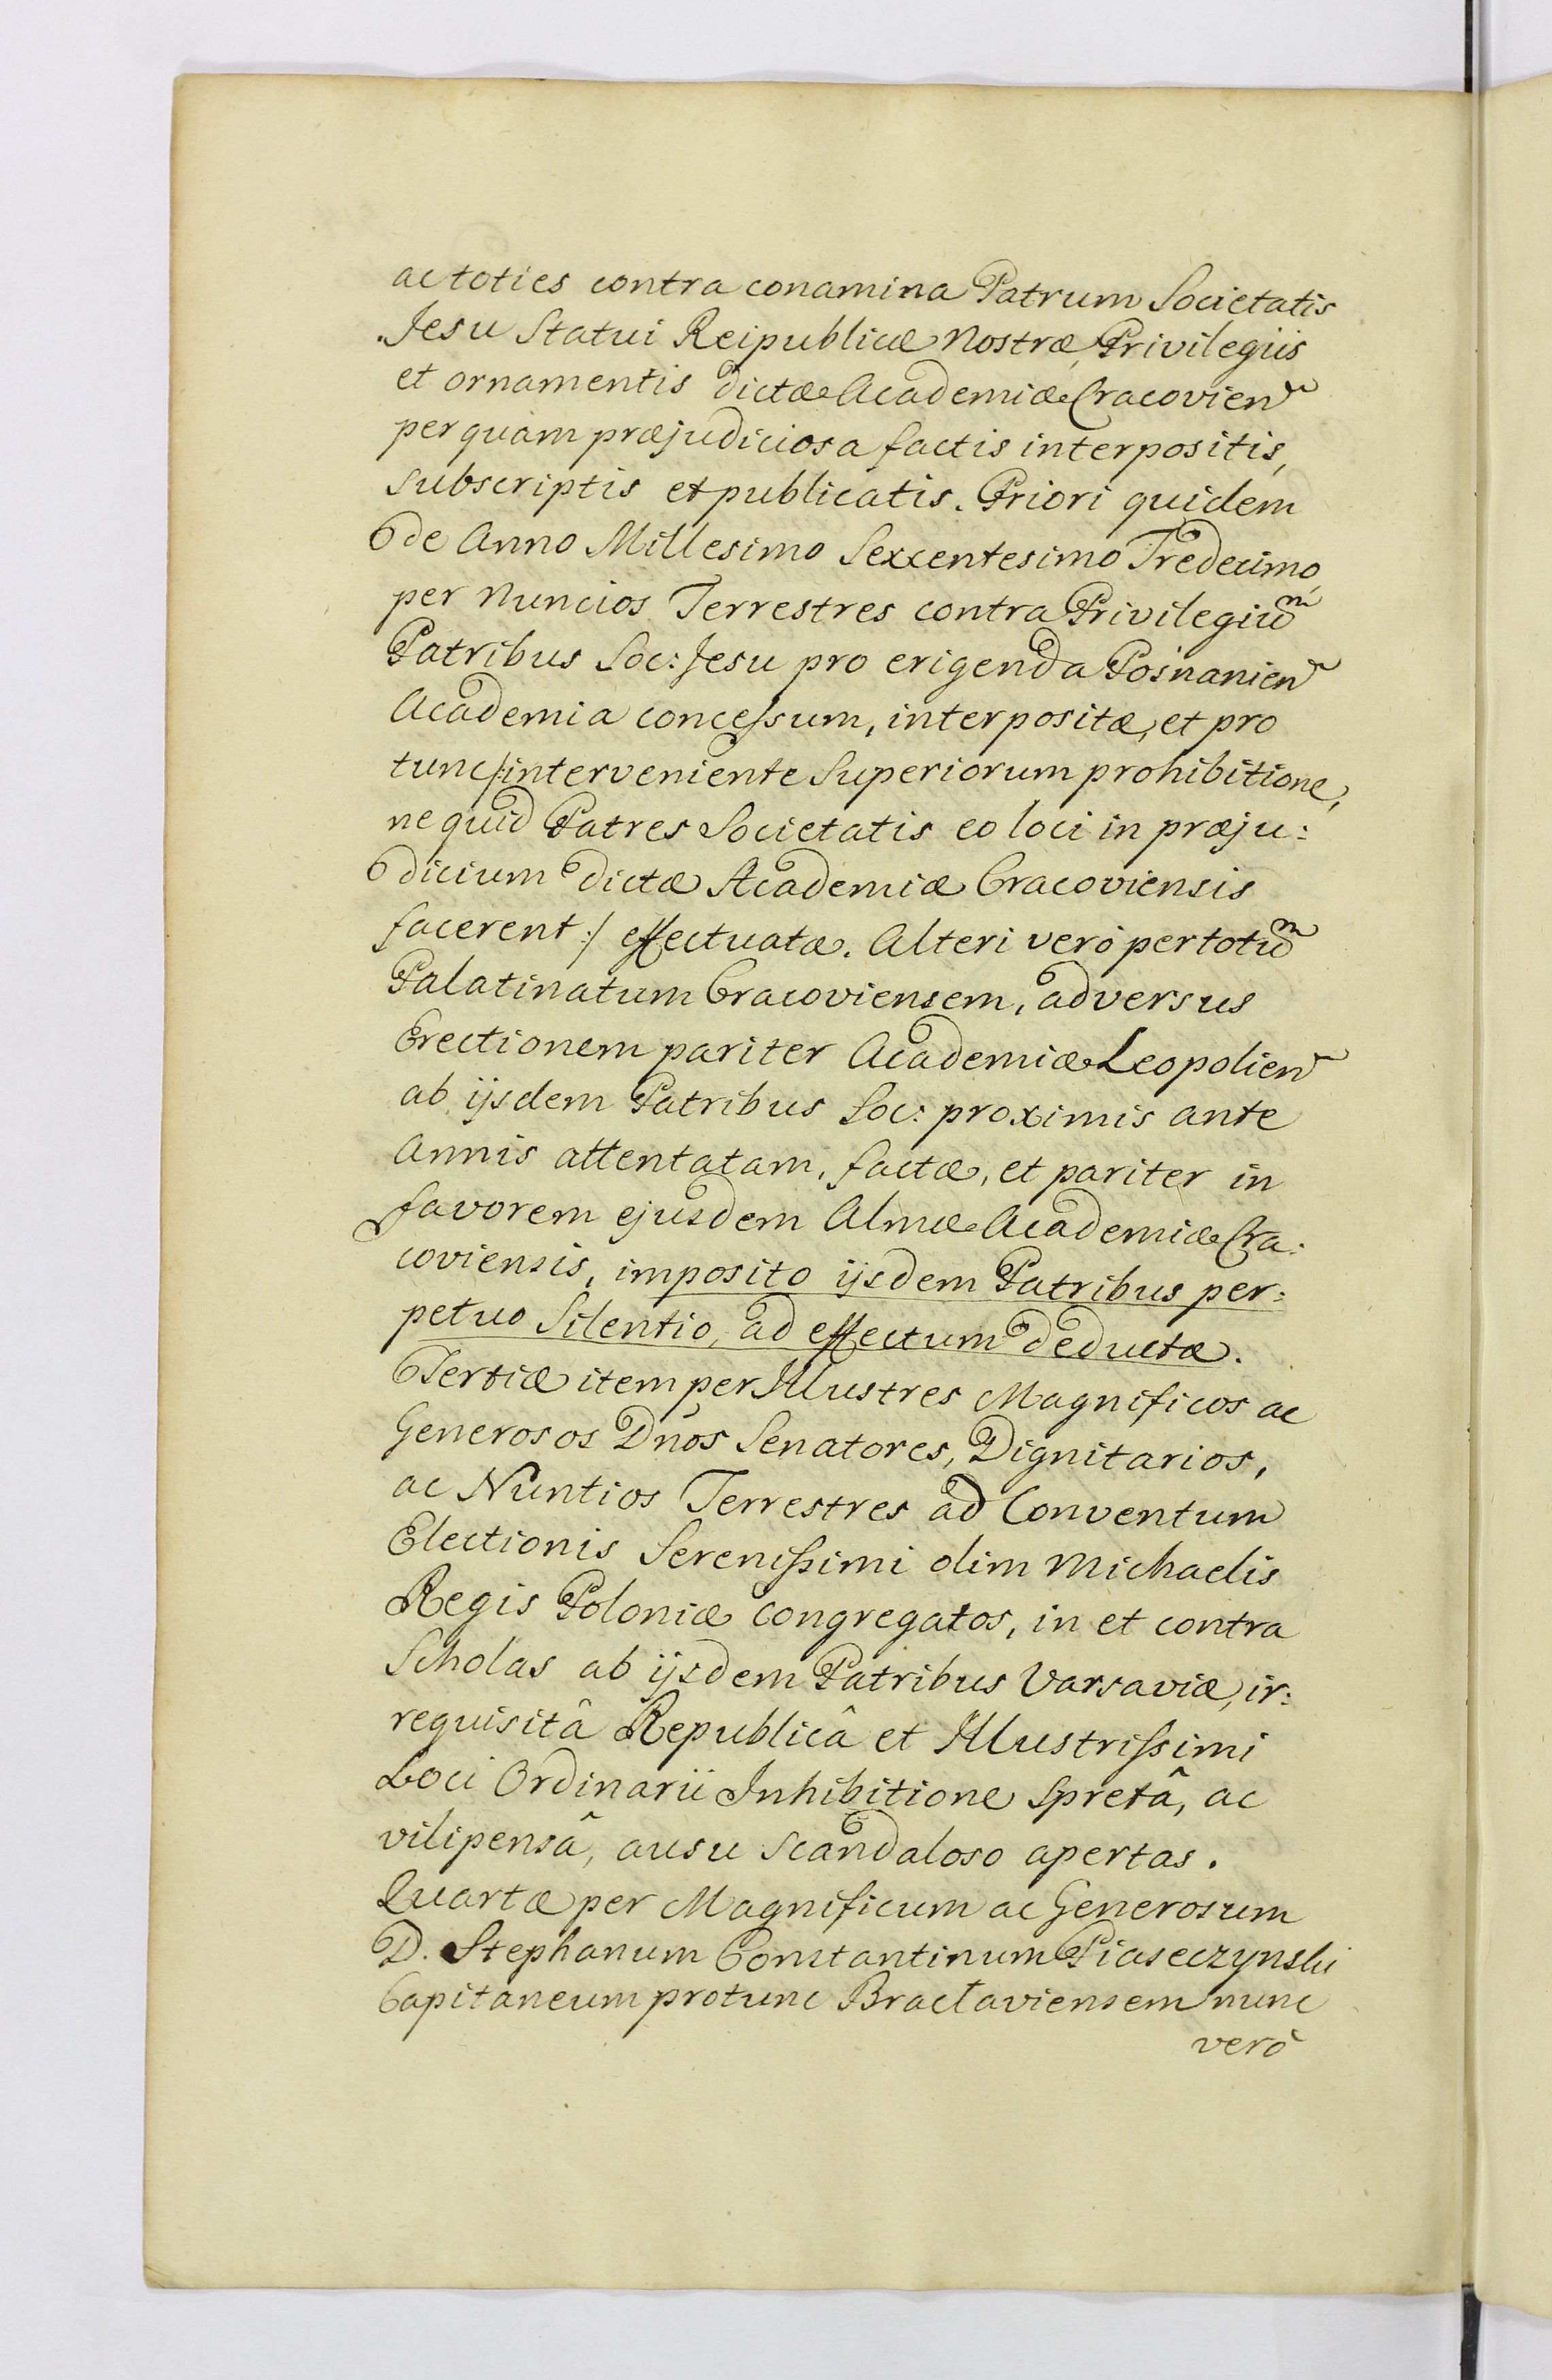 ac toties contra conamina Patrum Societatis
Jesu Statui Reipublicæ Nostræ, Privilegiis
et ornamentis dictæ Academiæ Cracovien͂
perquam præjudiciosa factis interpositis,
subscriptis et publicatis. Priori quidem
de Anno Millesimo Sexcentesimo Tredecimo,
per Nuncios Terrestres contra Privilegiuᵐ
Patribus Soc: Jesu pro erigenda Posnanien͂
Academia concessum, interpositæ, et pro
tunc /: interveniente Superiorum prohibitione,
ne quid Patres Societatis eo loci in præju:
dicium dictæ Academiæ Cracoviensis
facerent :/ effectuatæ. Alteri verò per totuᵐ
Palatinatum Cracoviensem, adversus
Erectionem pariter Academiæ Leopolien͂
ab ijsdem Patribus Soc: proximis ante
Annis attentatam, factæ, et pariter in
favorem ejusdem Almæ Academiæ Cra:
coviensis, imposito ijsdem Patribus per:
petuo Silentio, ad effectum deductæ.
Tertiæ item per Illustres Magnificos ac
Generosos Dños Senatores, Dignitarios,
ac Nuntios Terrestres ad Conventum
Electionis Serenissimi olim Michaelis
Regis Poloniæ congregatos, in et contra
Scholas ab ijsdem Patribus Varsaviæ, ir:
requisitâ Republicâ et Illustrissimi
Loci Ordinarii Inhibitione spretâ, ac
vilipensâ, ausu scandaloso apertas.
Quartæ per Magnificum ac Generosum
D. Stephanum Constantinum Piaseczynski
Capitaneum protunc Braclaviensem nunc
verò